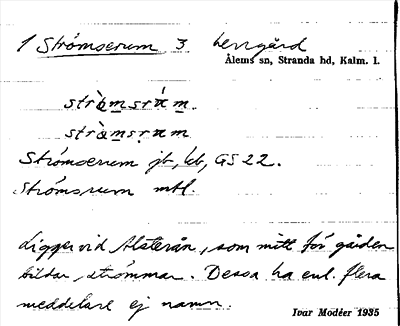 1 Strömserum 3 herrgård
Ålems sn, Stranda hd, Kalm. l.
strò̀msrá m.
strà̀msr̥a m
Strömserum jb, kb, GS 22.
Strömsrum mtl.
Ligger vid Alsterån, som mitt för gården
bildar strömmar. Dessa ha enl. flera
meddelare ej namn.
Ivar Modéer 1935